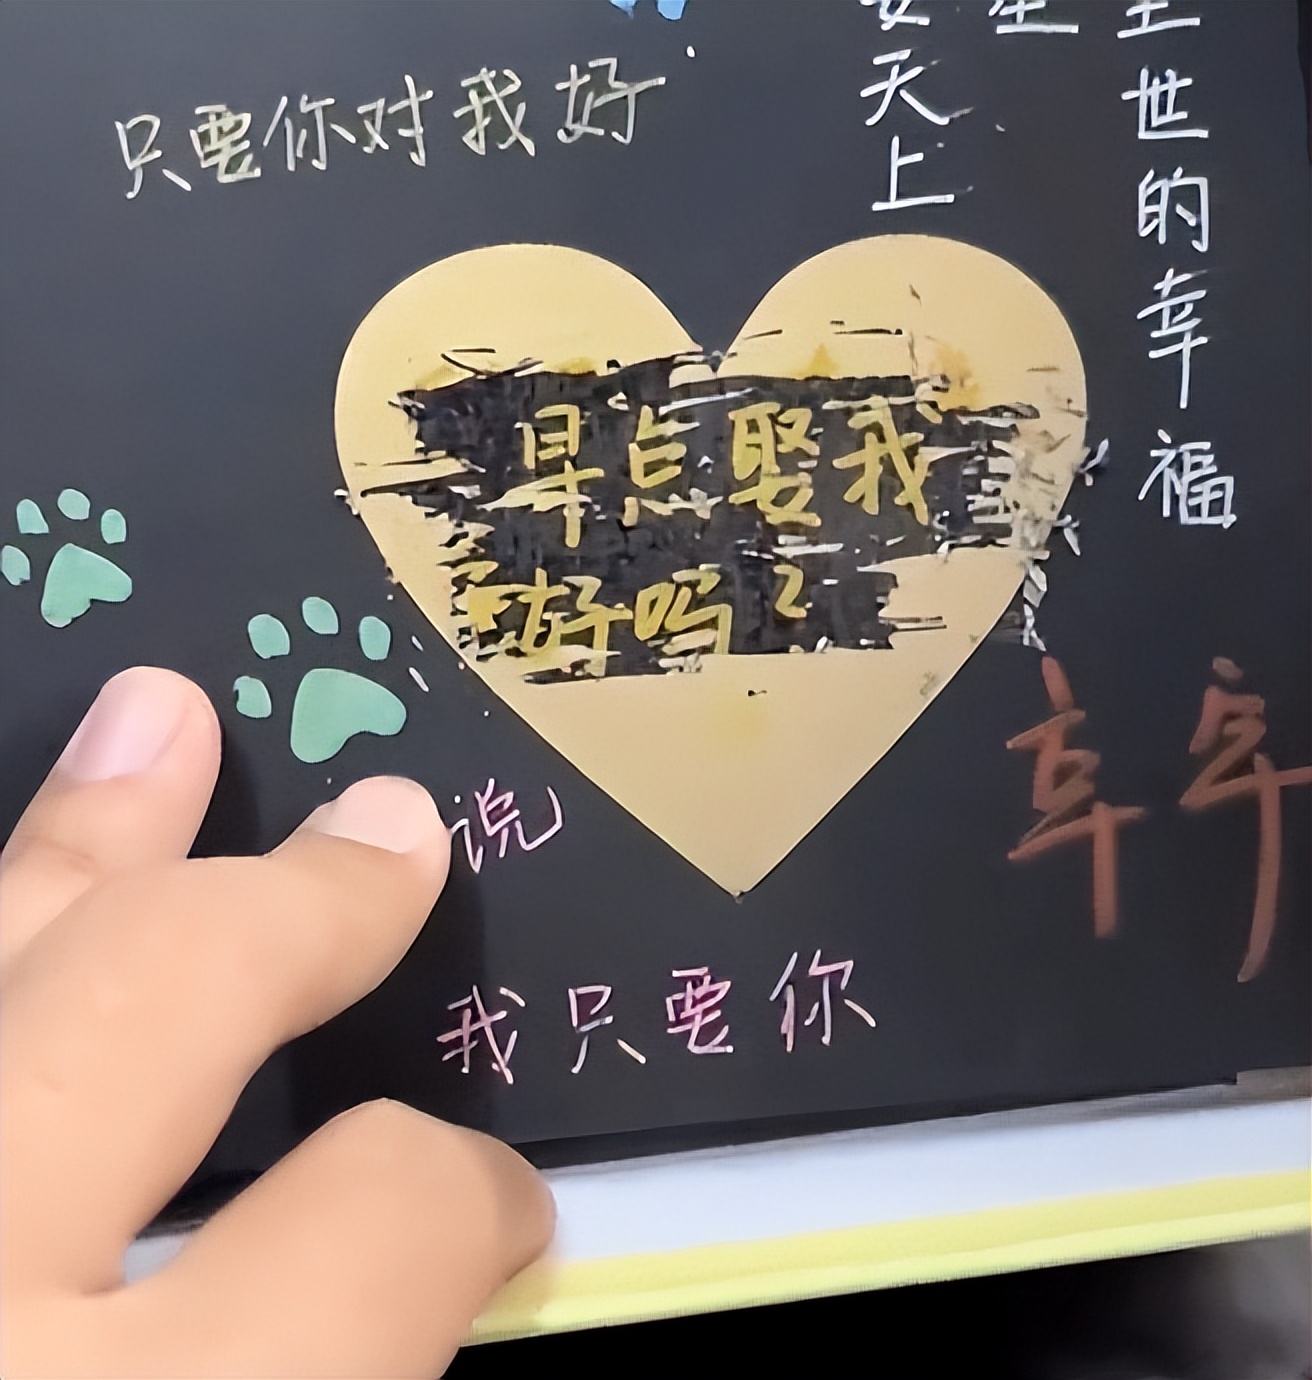 只要你对我好
天上
世的幸福
早点娶我
好吗?
说
我只要你